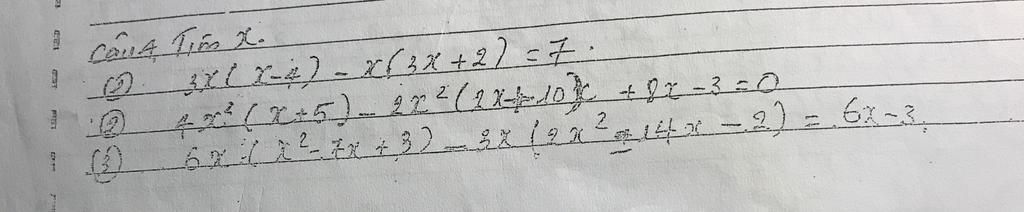 Câu 4. Tìm x.
(1) 3x(x-4) - x(3x+2) = 7.
(2) 4x²(x+5) - 2x²(2x+10) + 8x - 3 = 0
(3) 6x(x²-7x+3) - 3x(2x²-14x-2) = 6x-3